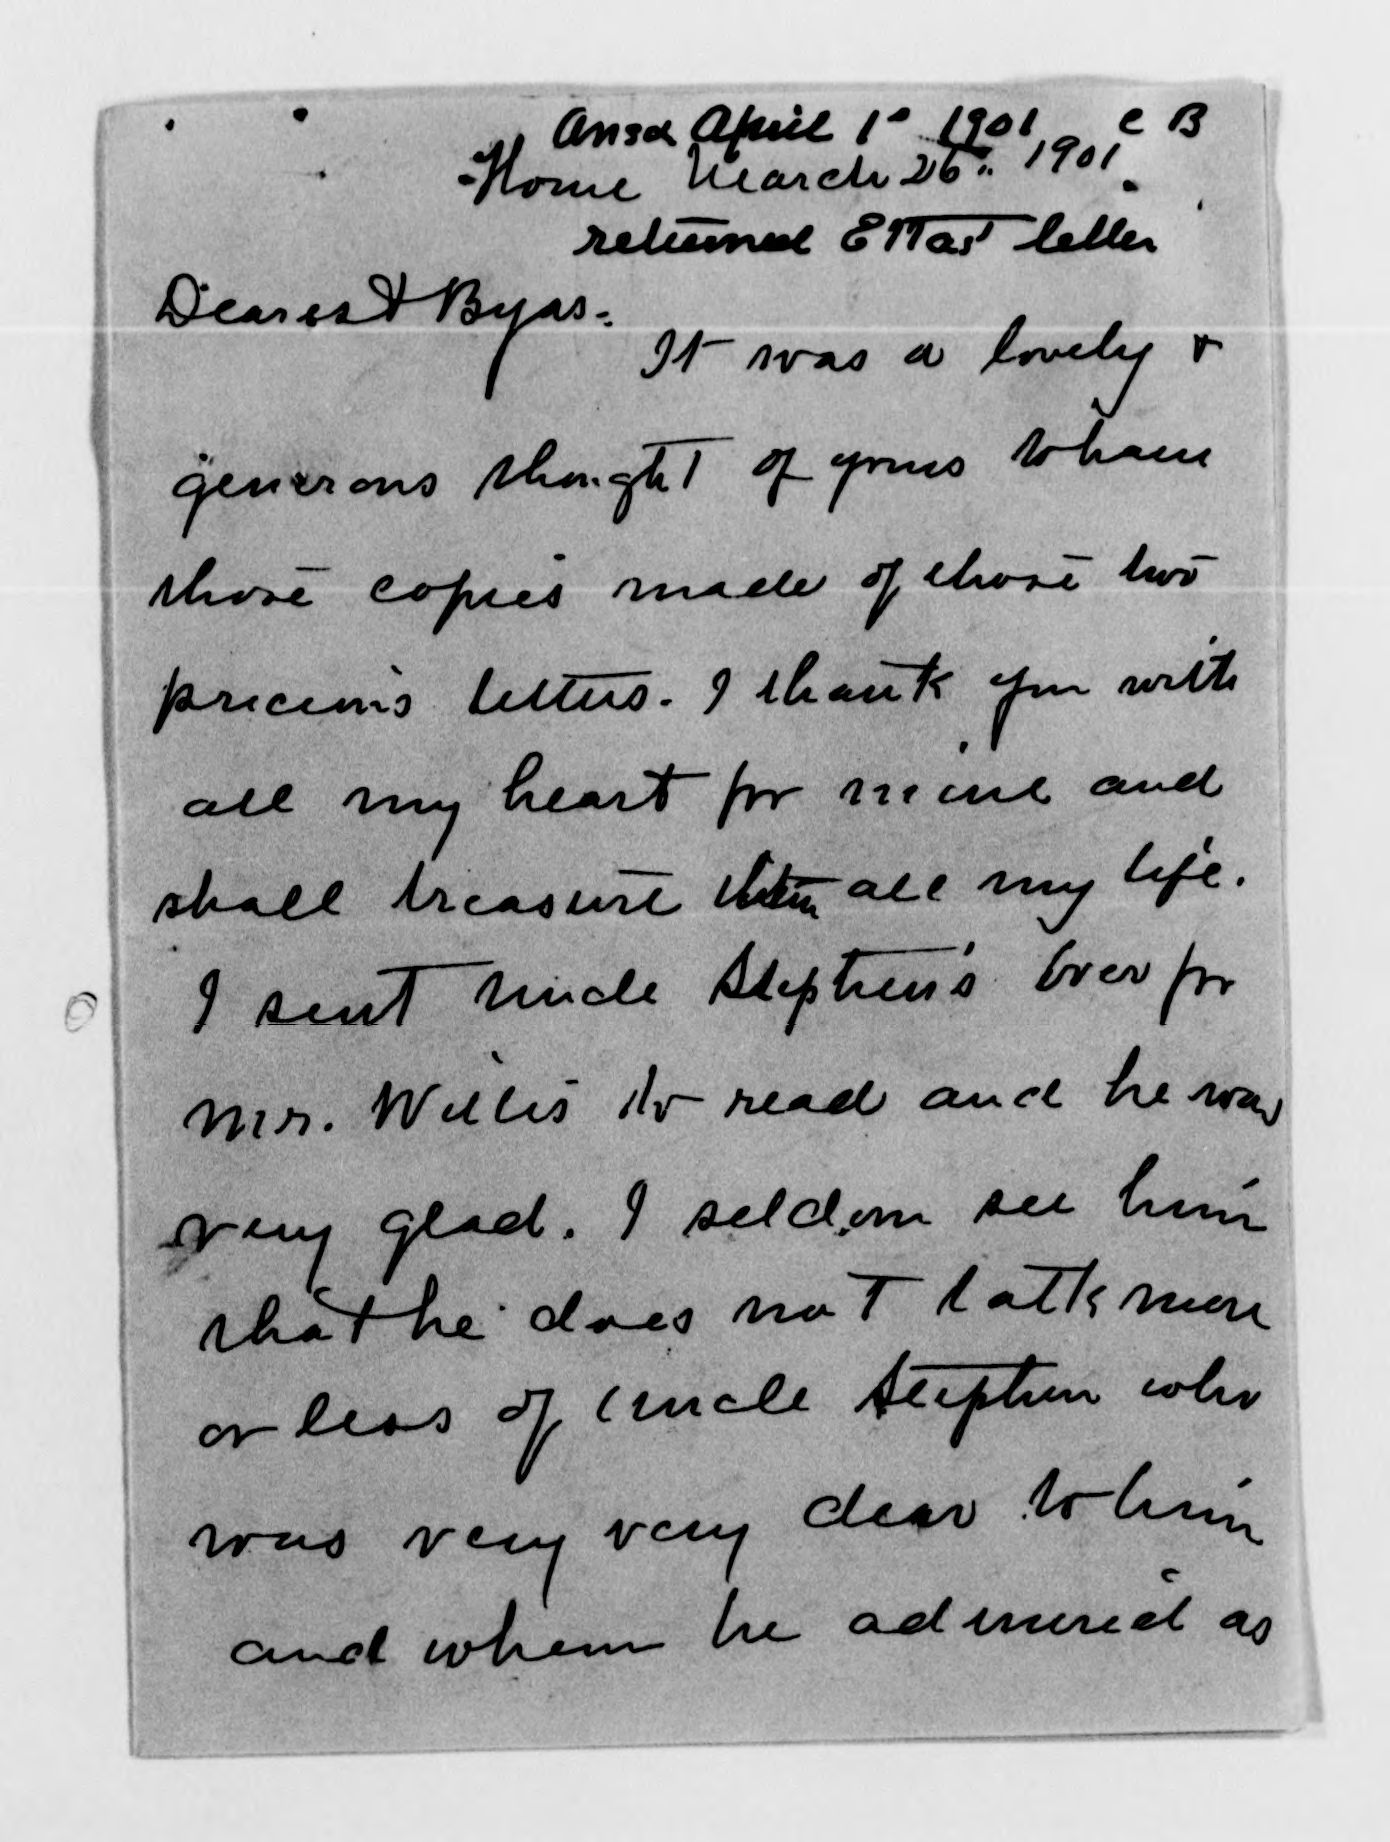 Ansd April 1° 1901 C B
Home March 26th. 1901.
returned Ettas letter
Dearest Byas.
It was a lovely &
generous thought of yours to have
those copies made of those two
precious letters. I thank you with
all my heart for mine and
shall treasure them all my life.
I sent Uncle Stephen's over for
Mr. Willis to read and he was
very glad. I seldom see him
that he does not talk more
or less of Uncle Stephen who
was very very dear to him
and whom he admired as